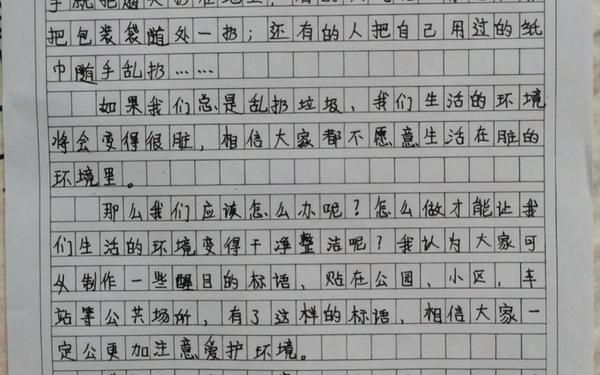 手就把烟头扔在地上
把包装袋随外一扔；还有的人把自己用过的纸
巾随手乱扔……
如果我们总是乱扔垃圾，我们生活的环境
将会变得很脏，相信大家都不愿意生活在脏的
环境里。
那么我们应该怎么办呢？怎么做才能让我
们生活的环境变得干净整洁呢？我认为大家可
以制作一些醒目的标语，贴在公园、小区、车
站等公共场所，有了这样的标语，相信大家一
定公更加注意爱护环境。